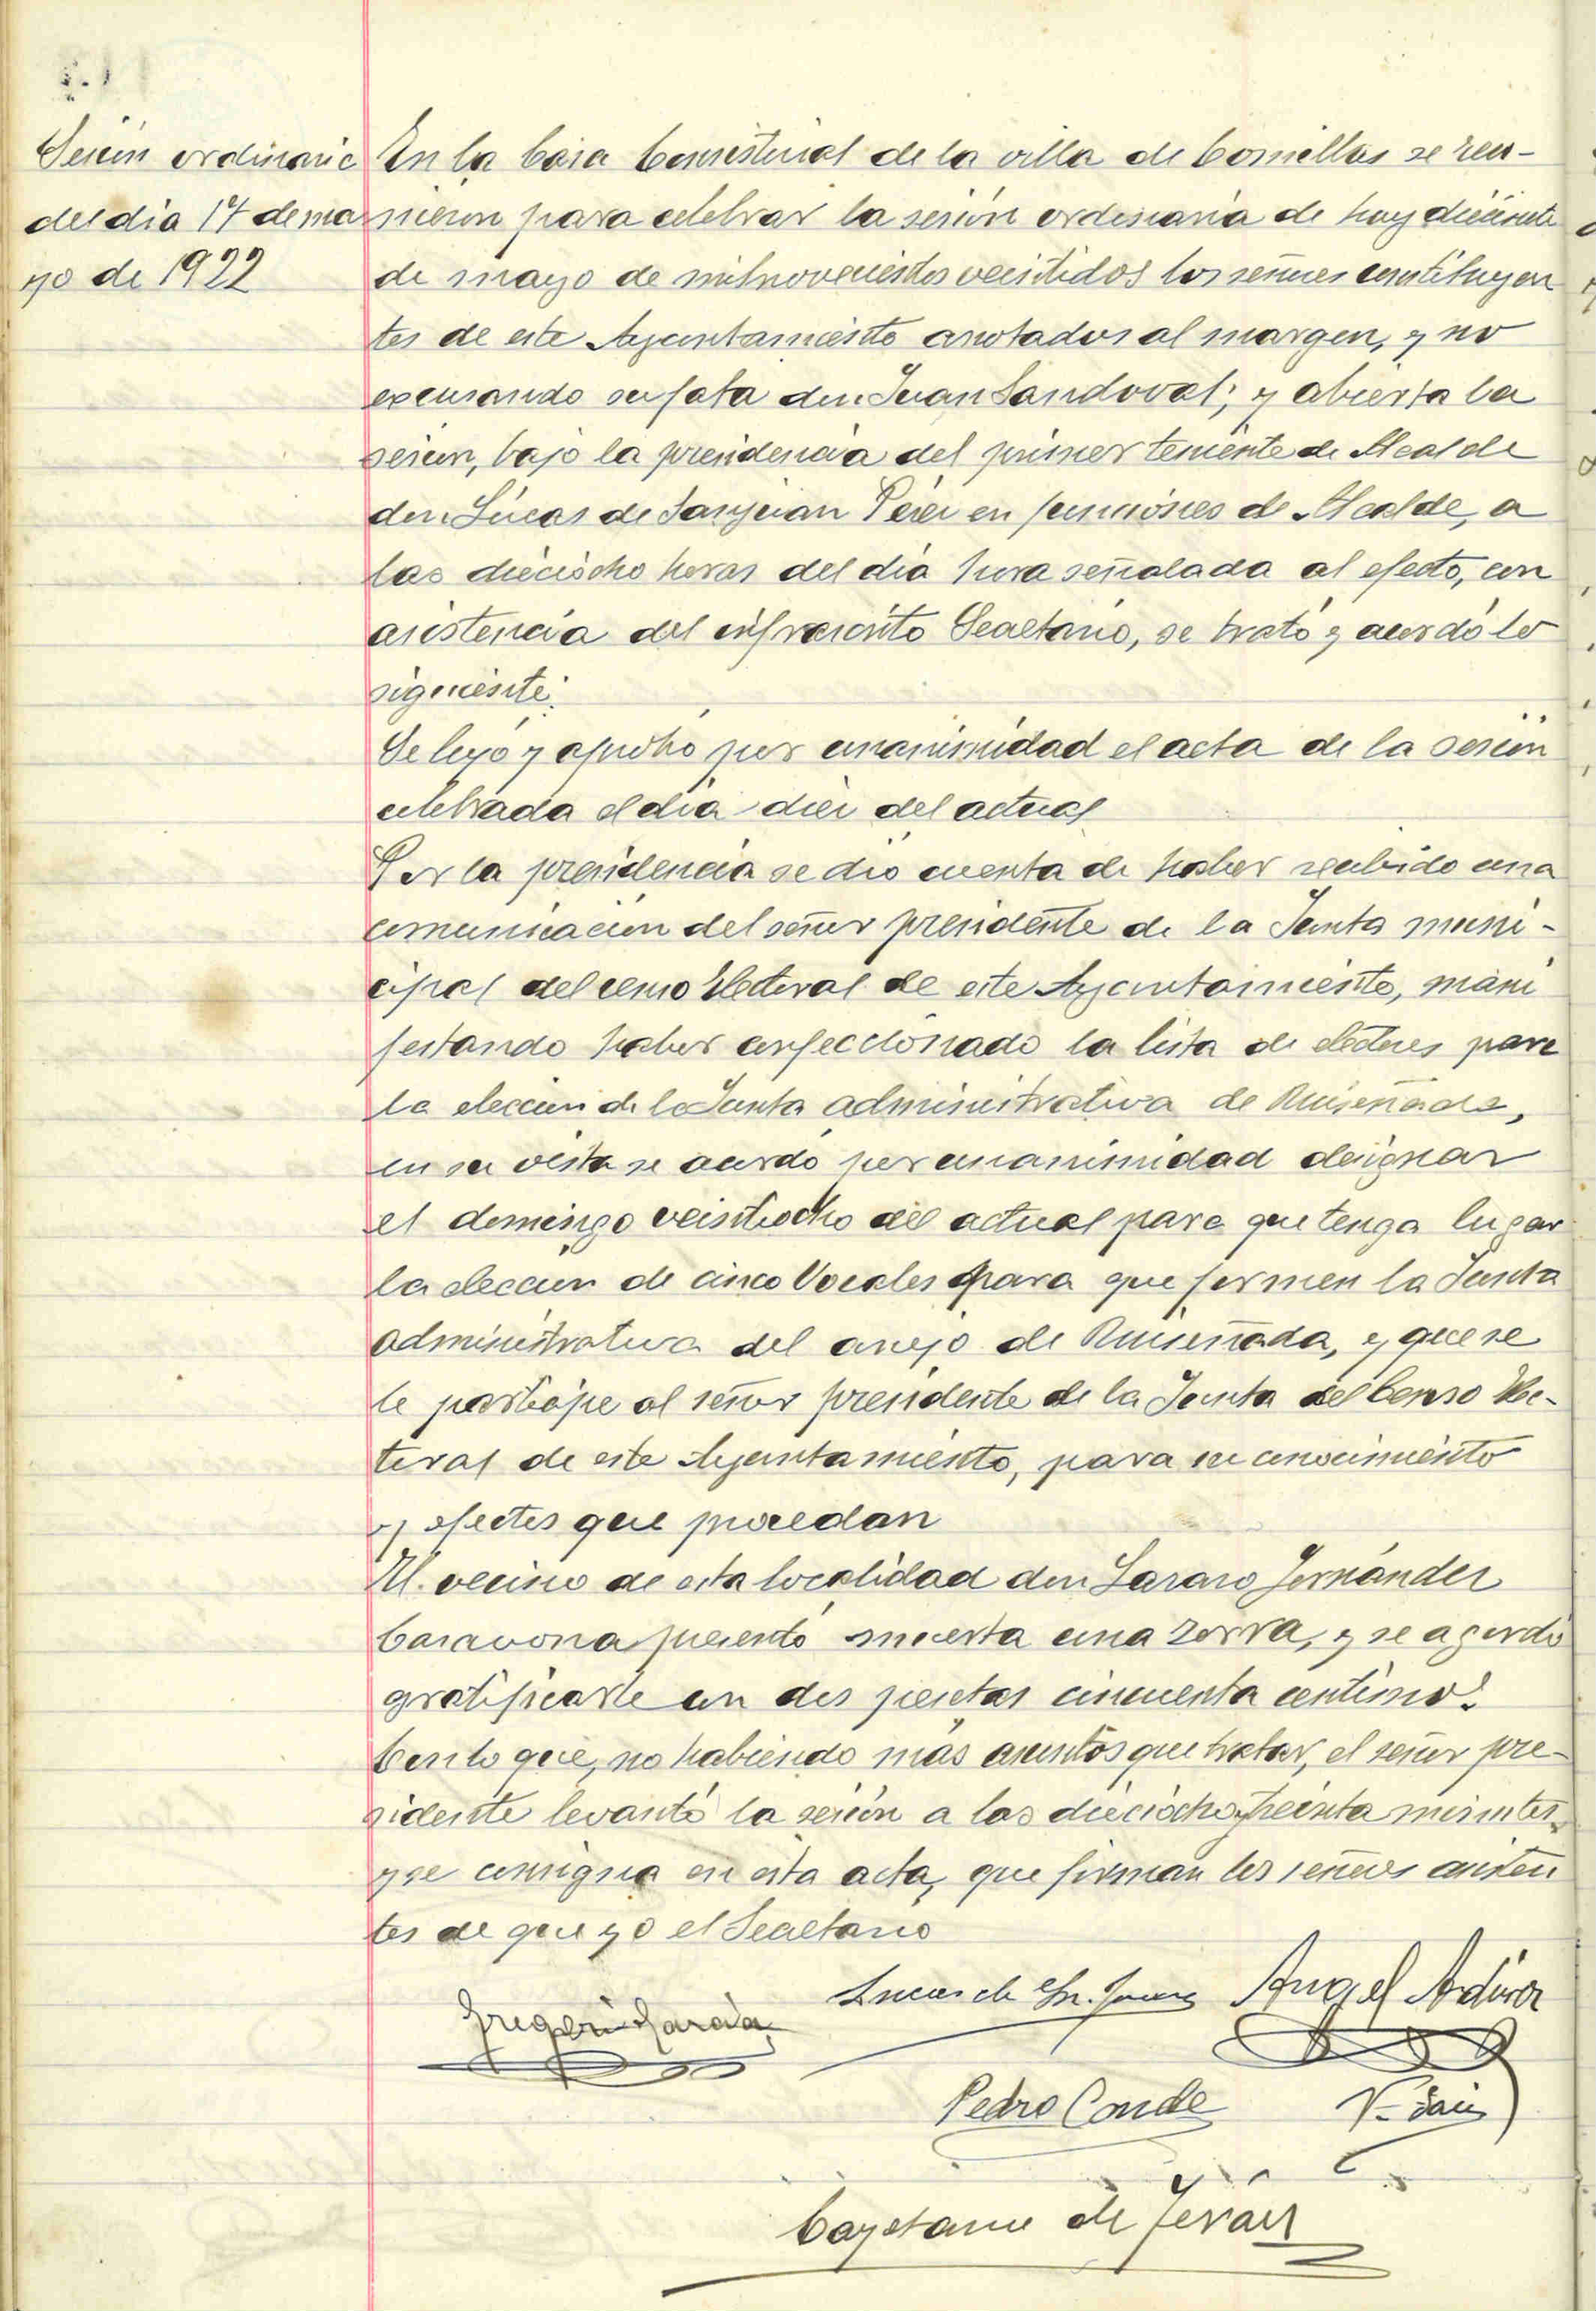 Sesión ordinaria
del dia 17 de ma
yo de 1922
En la Casa Consistorial de la villa de Comillas se reu-
nieron para celebrar la sesión ordinaria de hoy diecisiete
de mayo de mil novecientos veintidos los señores constituyen
tes de este Ayuntamiento anotados al margen, y no
excusando su falta don Juan Sandoval; y abierta la
sesion, bajo la presidencia del primer teniente de Alcalde
don Lúcas de Sanjuan Pérez en funciones de Alcalde, a
las dieciocho horas del dia hora señalada al efecto, con
asistencia del infrascrito Secretario, se trató y acordó lo
siguiente:
Se leyó y aprobó por unanimidad el acta de la sesión
celebrada el dia diez del actual
Por la presidencia se dió cuenta de haber recibido una
comunicacion del señor presidente de la Junta muni-
cipal del censo Electoral de este Ayuntamiento, mani
festando haber confeccionado la lista de electores para
la eleccion de la Junta administrativa de Ruiseñada,
en su vista se acordó por unanimidad designar
el domingo veintiocho del actual para que tenga lugar
la eleccion de cinco Vocales para que formen la Junta
administrativa del anejo de Ruiseñada, y que se
le participe al señor presidente de la Junta del Censo Elec-
toral de este Ayuntamiento, para su conocimiento
y efectos que procedan
El vecino de esta localidad don Lazaro Fernández
Casavona presentó muerta una zorra, y se acordó
gratificarle con dos pesetas cincuenta centimos.
Con lo que, no habiendo más asuntos que tratar, el señor pre-
sidente levantó la sesión a las dieciocho y treinta minutos,
y se consigna en esta acta, que firman los señores asisten
tes de que yo el Secretario
Gregorio Garcia Lucas de Sn. Juan Angel Ardines
Pedro Conde V. Sainz
Cayetano de Terán